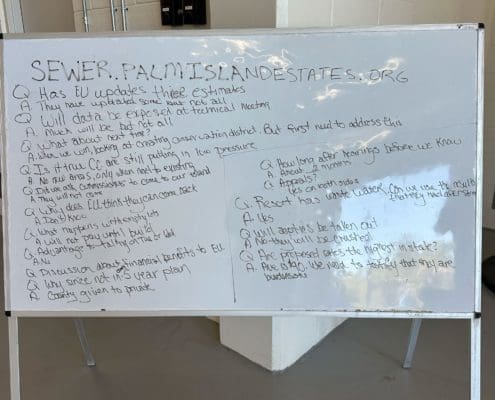 SEWER.PALMISLANDESTATES.ORG
Q Has EU updates their estimates
A. They have updated some but not all
Q Will data be exposed at technical meeting
A. Much will be but not all
Q What about next time?
A. When we win, looking at creating conservation district. But first need to address this
Q Is it true CC are still putting in low pressure
A. No new areas, only when next to existing
Q Did we ask commissioners to come to our island
A. They will not come
Q Why does EU think they can come back
A. Don't know
Q What happens with empty lots
A Will not pay until build
Q. Advantage to tally on True or Not
A No
Q Discussion about financial benefits to EU
Q Why since not in 5 year plan
A. County given to private
Q. How long after hearings before we know
A. About 2 months
Q. Appeals?
Yes on both sides
Q. Resort has water. Can we use the results
A Yes
Q Will septics be taken out
A No they will be crushed
Q Are proposed rates the highest in state?
A. We need to testify that they are burdensome